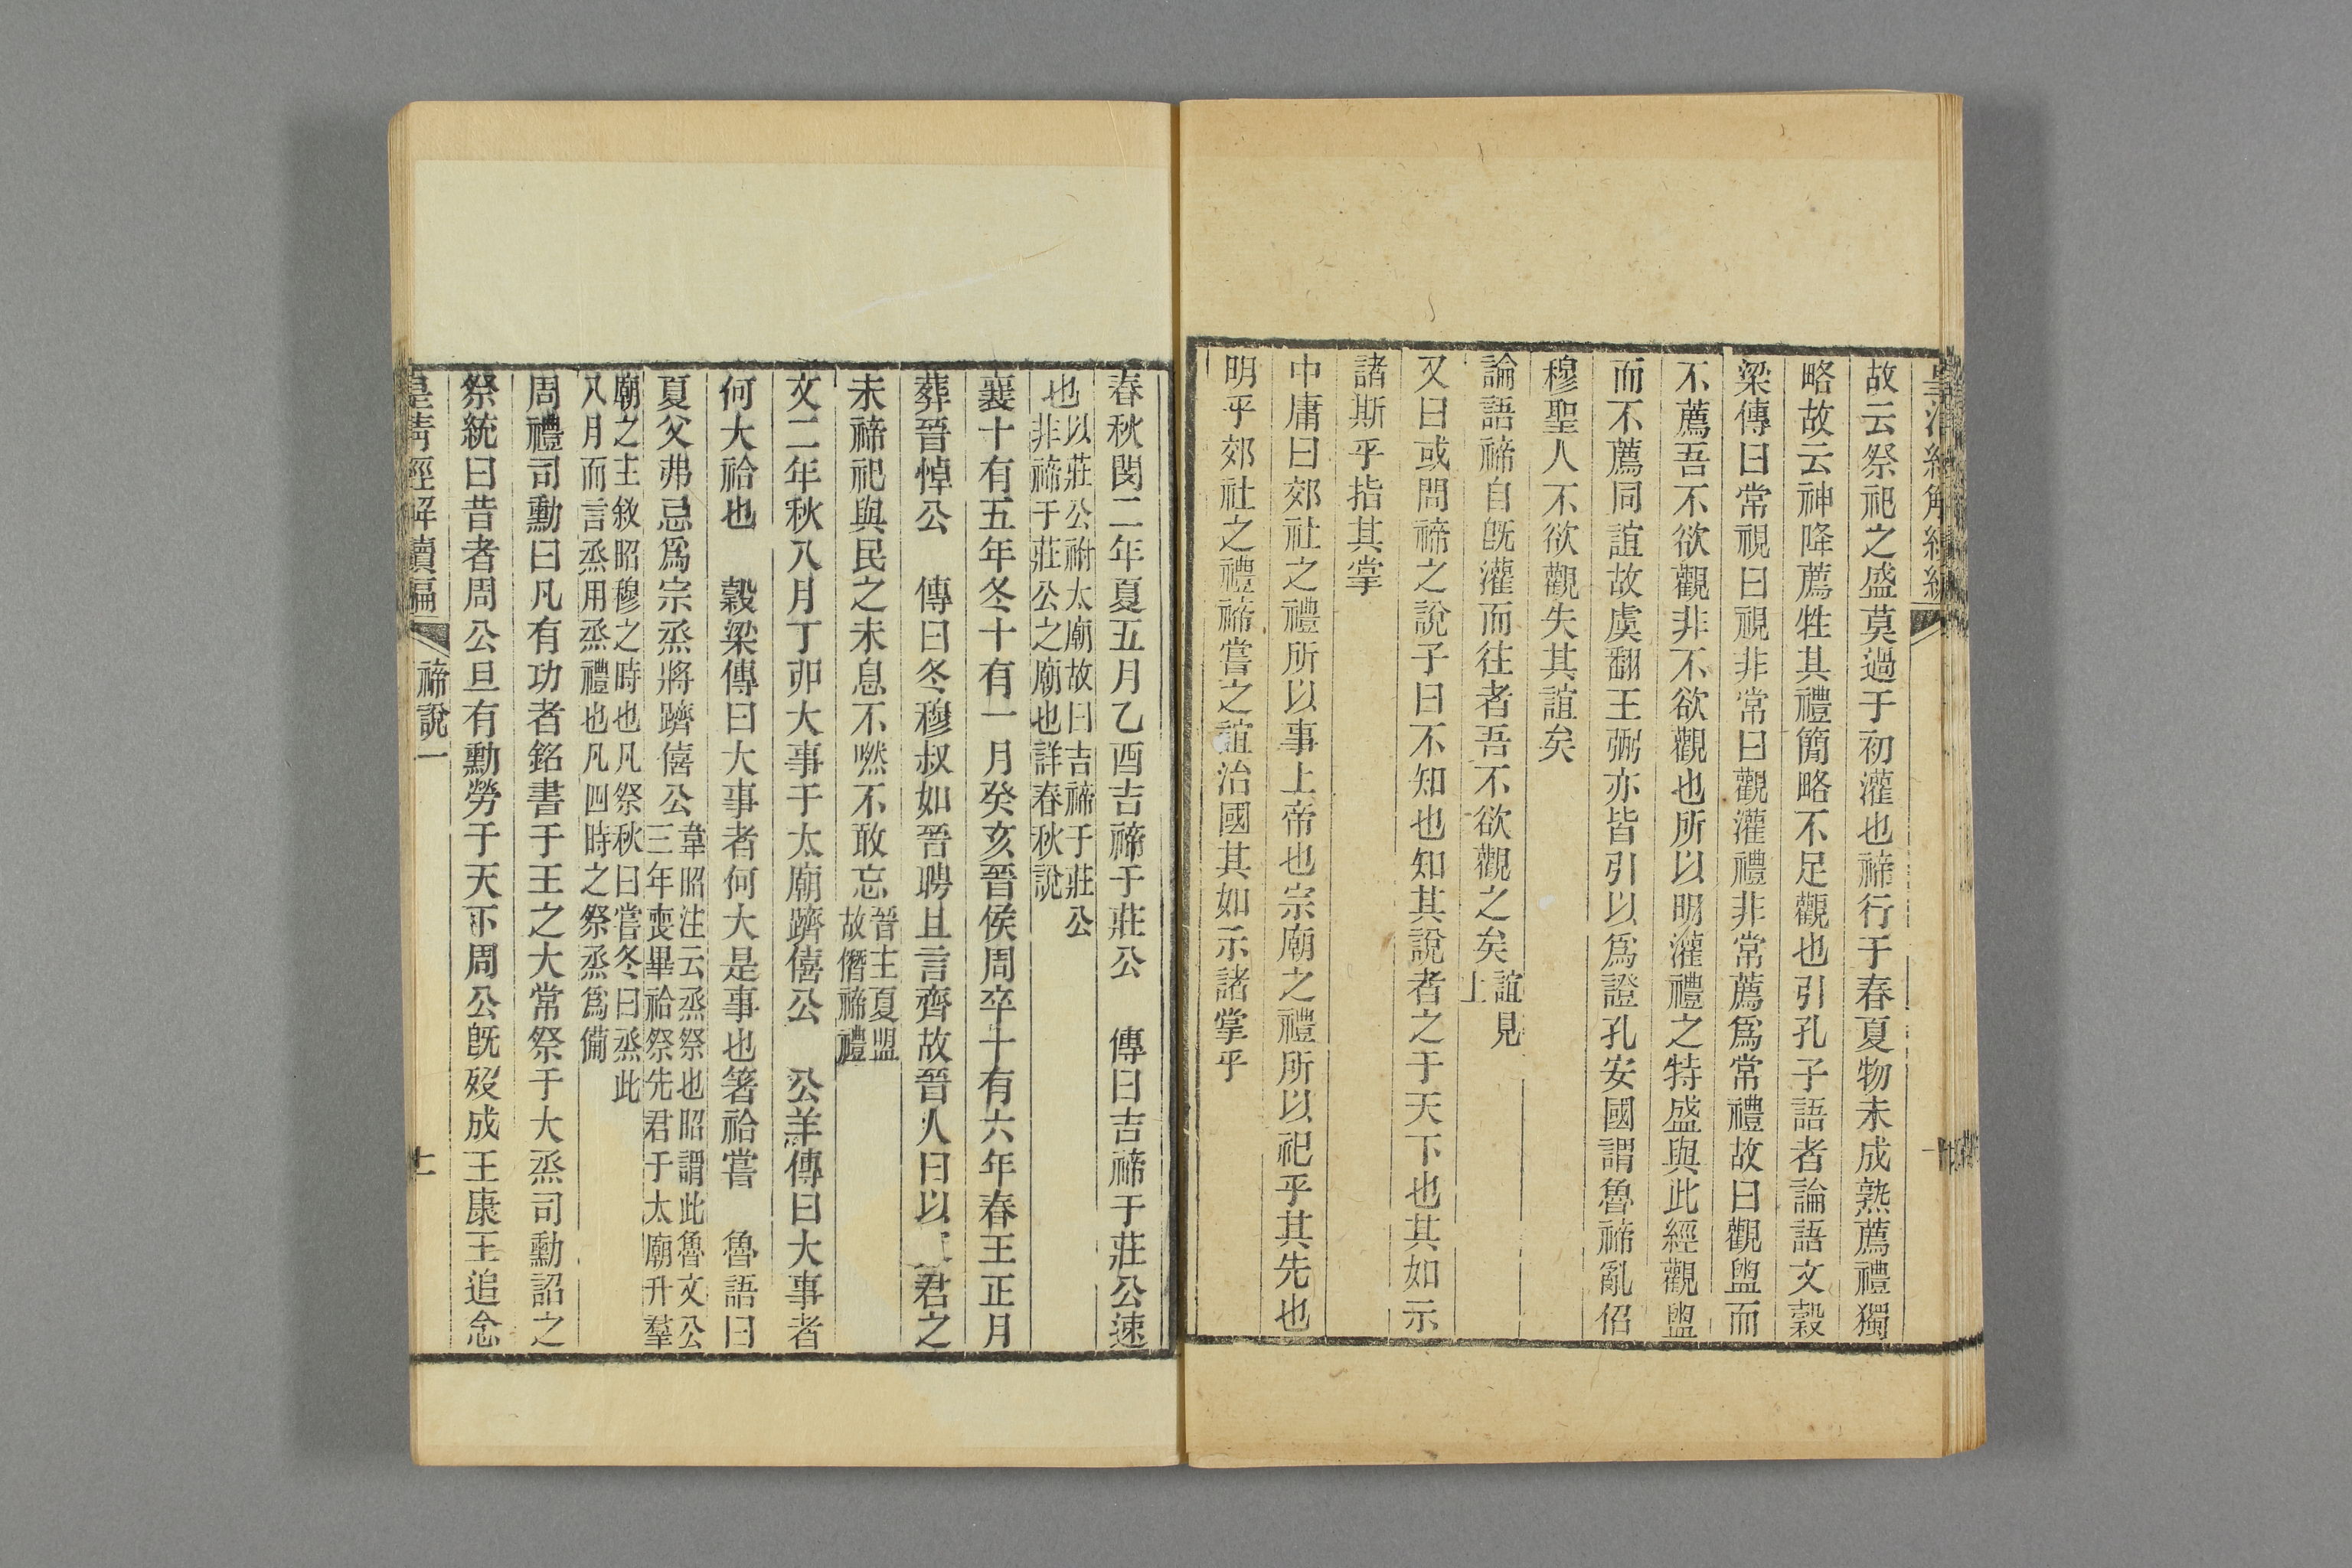 故云祭祀之盛莫過于初灌也禘行于春夏物未成熟薦禮獨
略故云神降薦牲其禮簡略不足觀也引孔子語者論語文穀
梁傳曰常視曰視非常曰觀灌禮非常薦爲常禮故曰觀盥而
不薦吾不欲觀非不欲觀也所以明灌禮之特盛與此經觀盥
而不薦同誼故虞翻王弼亦皆引以爲證孔安國謂魯禘亂佋
穆聖人不欲觀失其誼矣
論語禘自旣灌而往者吾不欲觀之矣誼見上
又曰或問禘之說子曰不知也知其說者之于天下也其如示
諸斯乎指其掌
中庸曰郊社之禮所以事上帝也宗廟之禮所以祀乎其先也
明乎郊社之禮禘嘗之誼治國其如示諸掌乎
春秋閔二年夏五月乙酉吉禘于莊公　傳曰吉禘于莊公速
也以莊公祔太廟故曰吉禘于莊公非禘于莊公之廟也詳春秋說
襄十有五年冬十有一月癸亥晉侯周卒十有六年春王正月
葬晉悼公　傳曰冬穆叔如晉聘且言齊故晉人曰以君之
未禘祀與民之未息不然不敢忘晉主夏盟故僭禘禮
文二年秋八月丁卯大事于太廟躋僖公　公羊傳曰大事者
何大祫也　穀梁傳曰大事者何大是事也著祫嘗　魯語曰
夏父弗忌爲宗烝將躋僖公韋昭注云烝祭也昭謂此魯文公三年喪畢祫祭先君于太廟升羣
廟之主敘昭穆之時也凡祭秋曰嘗冬曰烝此八月而言烝用烝禮也凡四時之祭烝爲備
周禮司勳曰凡有功者銘書于王之大常祭于大烝司勳詔之
祭統曰昔者周公旦有勳勞于天下周公旣歿成王康王追念
皇淸經解續編　禘說一